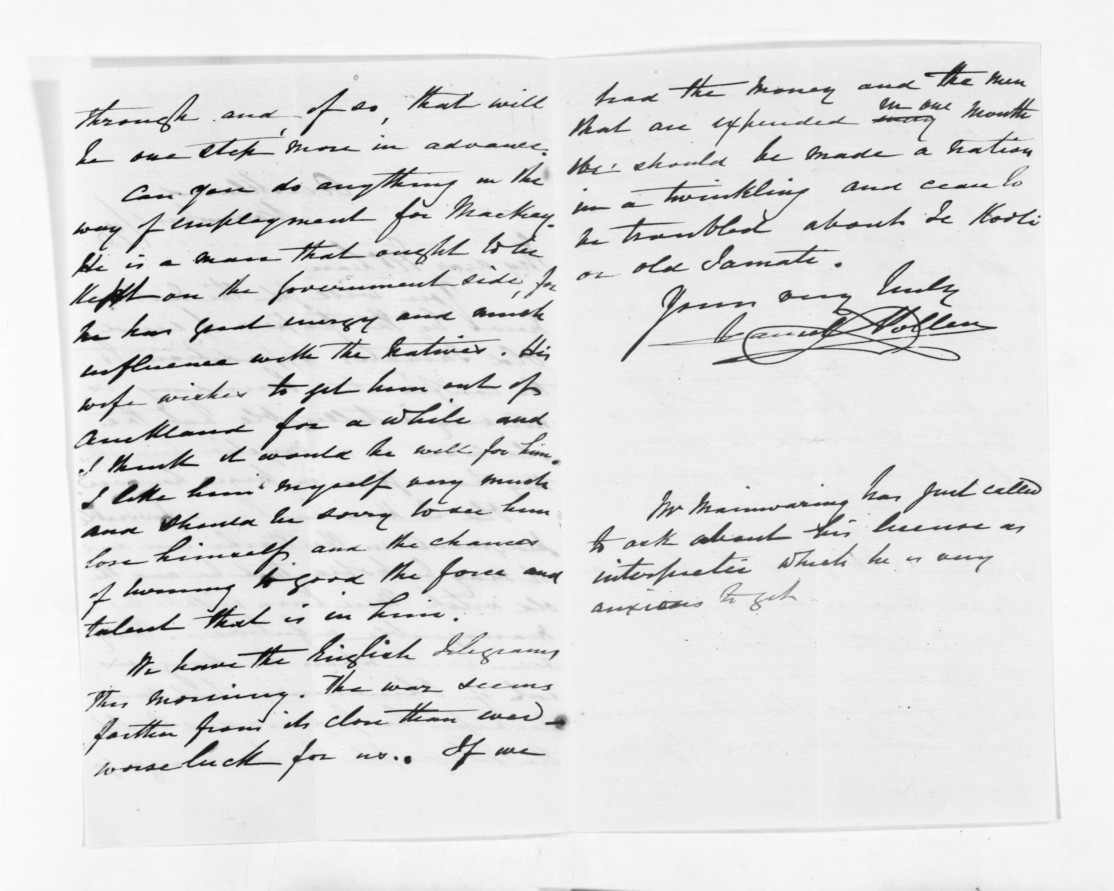 through and, if so, that will
be one step more in advance.
Can you do anything in the
way of employment for Mackay.
He is a man that ought to be
kept on the Government side, for
he has great energy and much
influence with the Natives. His
wife wishes to get him out of
Auckland for a while and
I think it would be well for him.
I like him myself very much
and should be sorry to see him
lose himself and the chances
of turning to good the force and
talent that is in him.
We have the English telegrams
this morning. The war seems
farther from its close than ever –
worse luck for us. If we
had the money and the men
that are expended in one month
we should be made a nation
in a twinkling and cease to
be troubled about Te Kooti
or old Tamate.
Yours very truly
Daniel Pollen
Mr Mainwaring has just called
to ask about his license as
interpreter which he is very
anxious to get